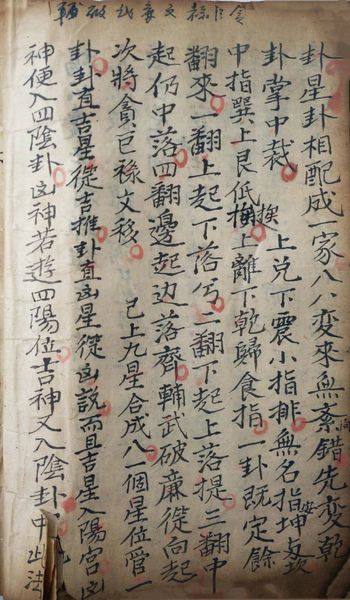 卦星卦相配成一家八八变來無紊錯先变乾
卦掌中裁 上兑下震小指排無名指坤
中指巽上艮低 上離下乾歸食指一卦既定餘
翻來一翻上起下落 二翻下起上落提三翻中
起仍中落四翻邊起边落齊輔武破廉從向起
次將貪巨禄文移 已上九星合成八一個星位管一
卦卦有吉星從吉推卦直凶星從凶説而且吉星入陽宫凶
神便入四陰卦凶神若遊四陽位吉神又入陰卦中此法